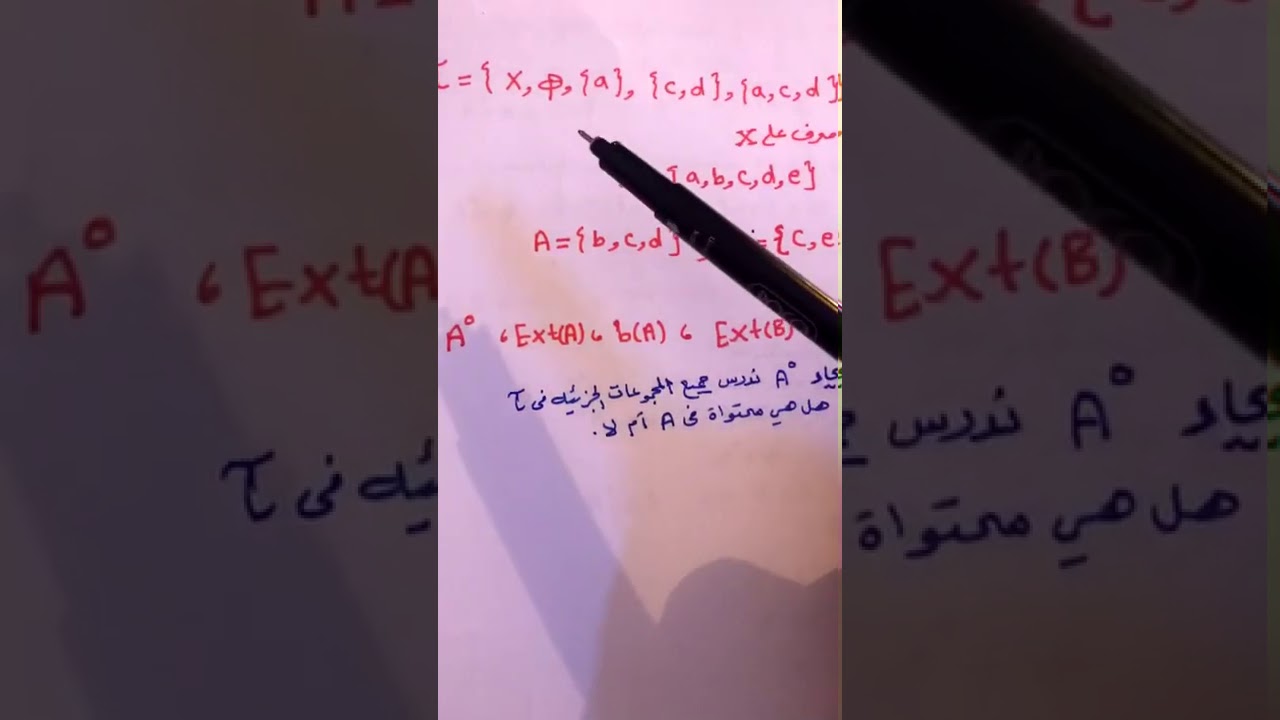 τ = { X, φ, {a}, {c,d}, {a,c,d}
معرف على X
{a,b,c,d,e}
A = {b,c,d} = {c,e
A° ، Ext(A) ، b(A) ، Ext(B)
A° ندرس جميع المجموعات الجزئيه فى τ
هل هي محتواة في A أم لا.